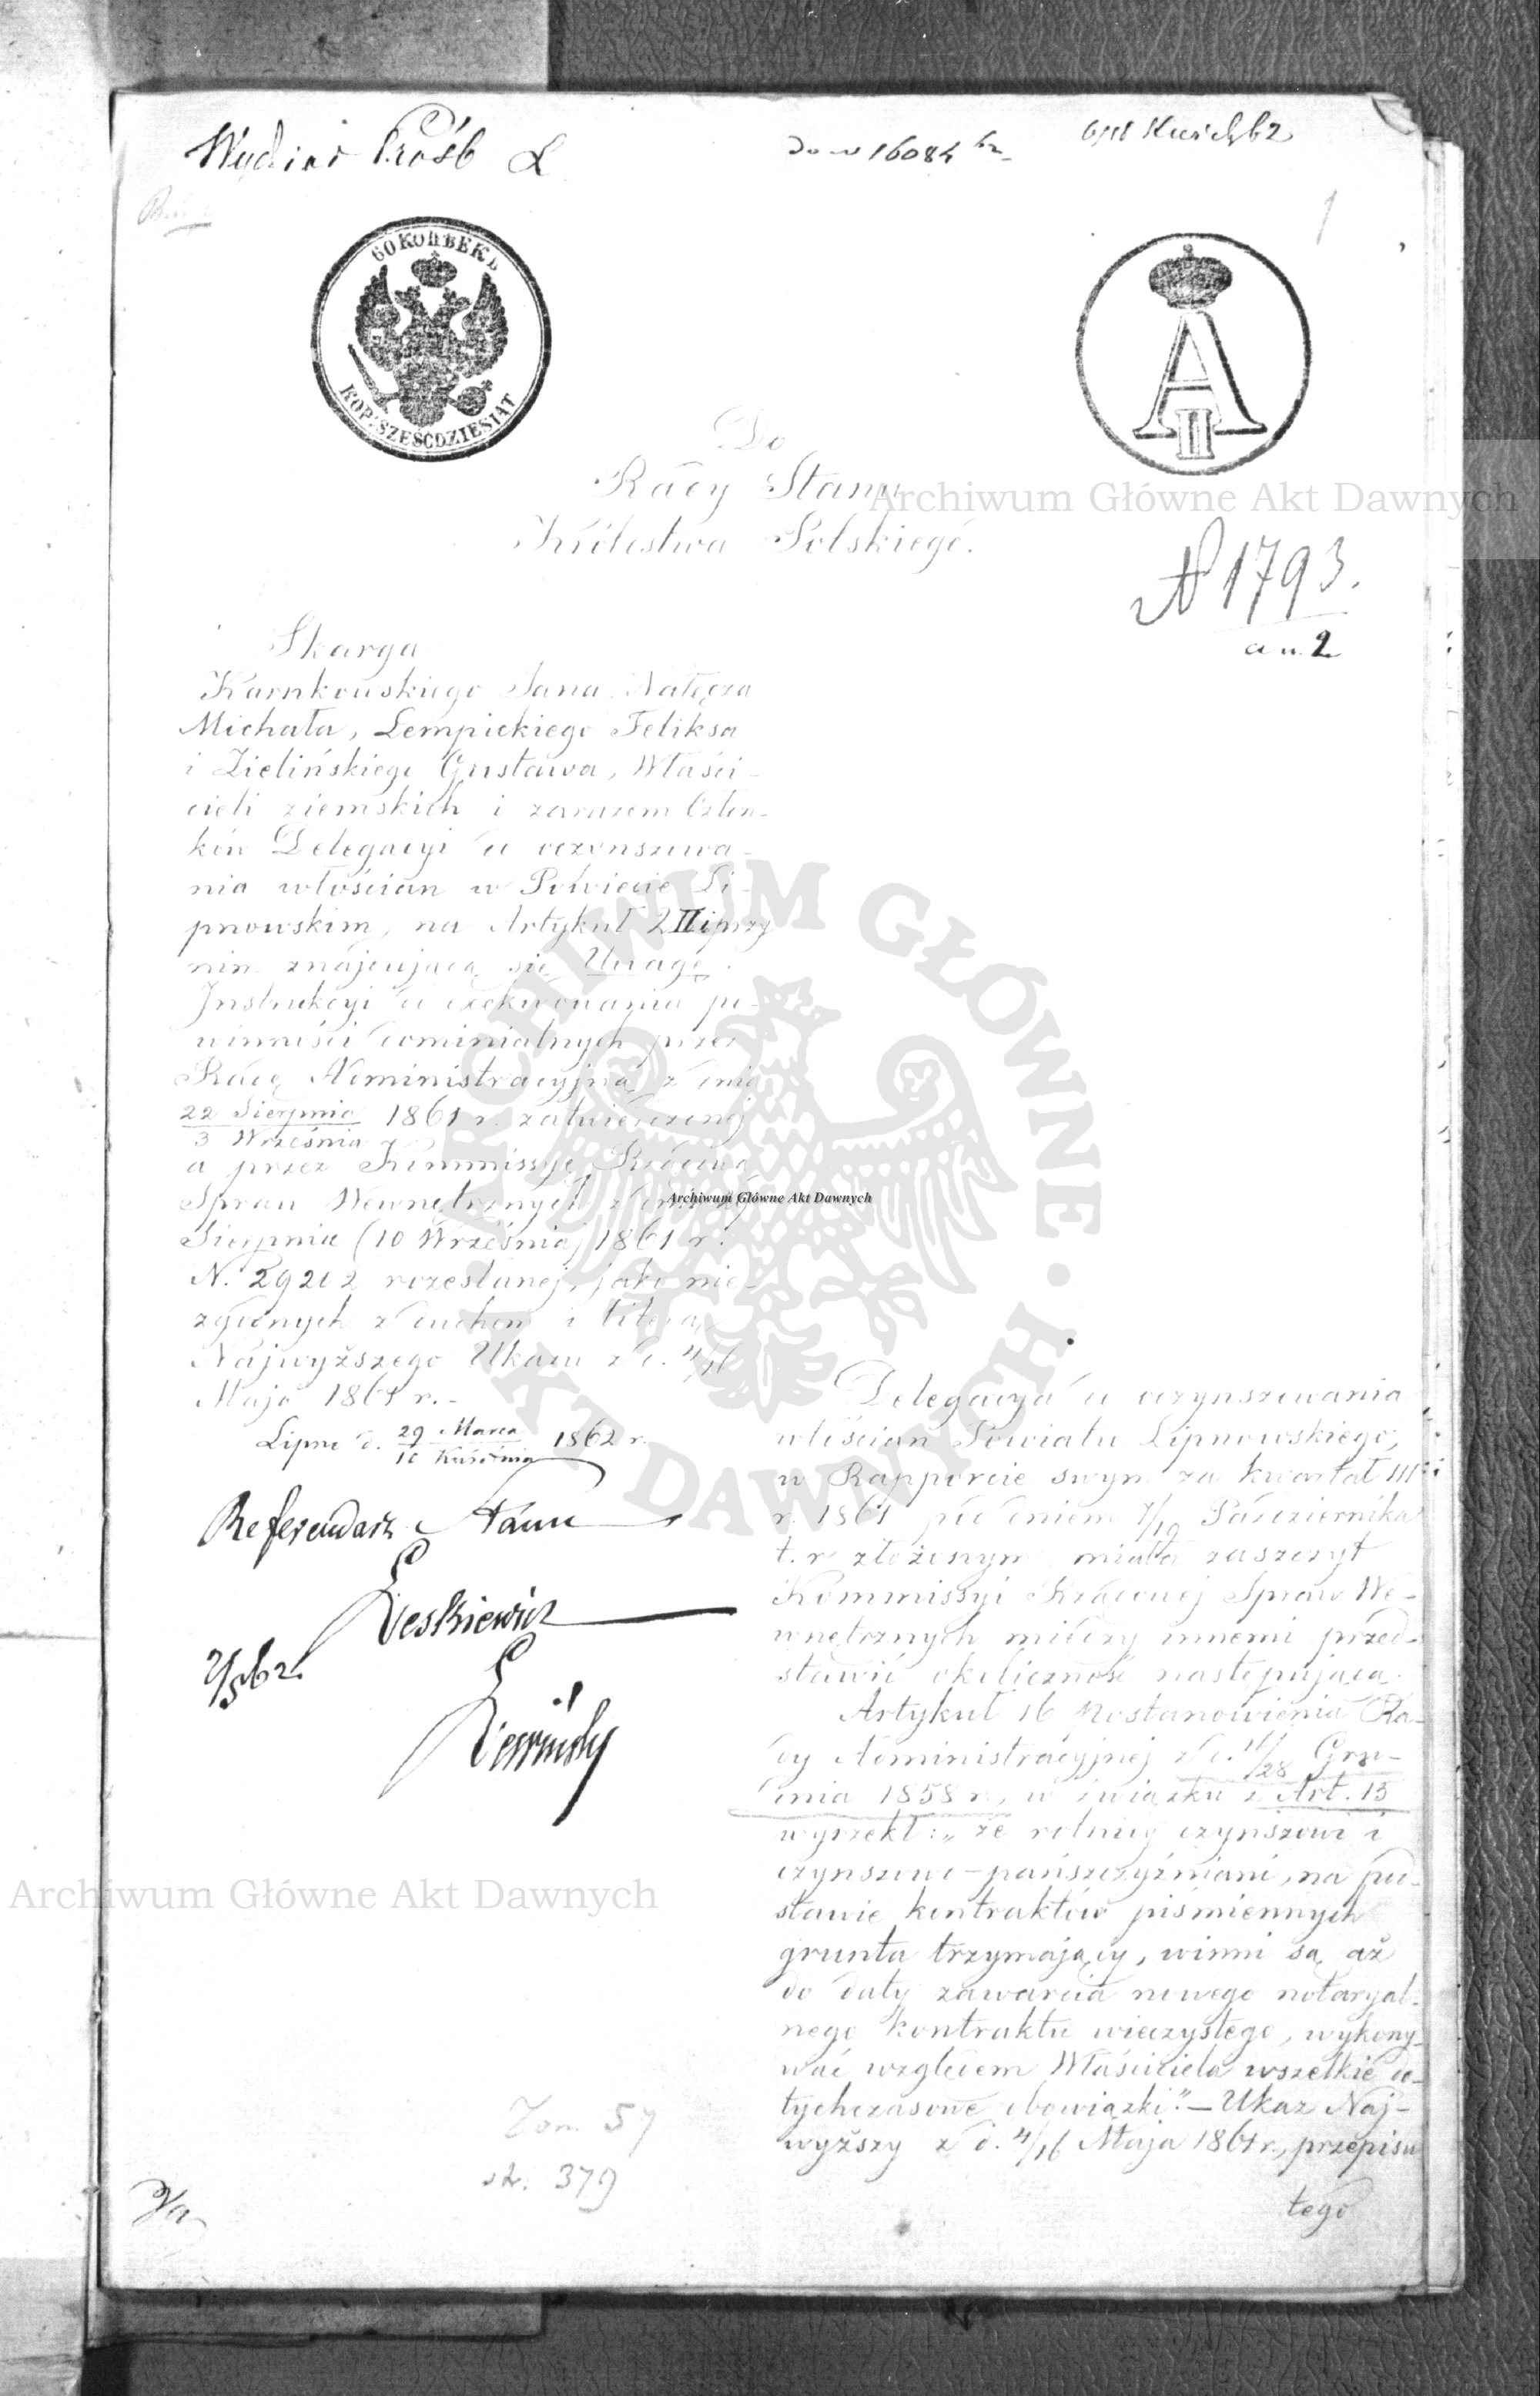 Wydział Próśb
do N 16084
60 КОПѢЕКЪ
KOP: SZEŚĆDZIESIĄT
A II
1
Do
Rady Stanu
Królestwa Polskiego.
N 1793.
Skarga
Karnkowskiego Jana, Nałęcza
Michała, Lempickiego Feliksa
i Zielińskiego Gustawa, Właści-
cieli ziemskich i zarazem Człon-
ków Delegacyi do oczynszowa-
nia włościan w Powiecie Li-
pnowskim, na Artykuł 2 II i przy
nim znajdującą się Uwagę
Instrukcyi do exekwowania po-
winności dominialnych przez
Radę Administracyjną z dnia
22 Sierpnia
3 Września
1861 r. zatwierdzonej
a przez Kommissyę Rządową
Spraw Wewnętrznych z dnia
Sierpnia (10 Września) 1861 r.
N. 29202 rozesłanej, jako nie-
zgodnych z duchem i literą
Najwyższego Ukazu z d. 4/16
Maja 1861 r.-
Lipno d. 29 Marca
10 Kwietnia
1862 r.
Referendarz Stanu
Delegacya do oczynszowania
włościan Powiatu Lipnowskiego,
w Rapporcie swym za kwartał III
r. 1861 pod dniem 7/19 Października
t. r. złożonym miała zaszczyt
Kommissyi Rządowej Spraw We-
wnętrznych między innemi przed-
stawić okoliczność następującą.
Artykuł 16 Postanowienia Ra-
dy Administracyjnej z d. 16/28 Gru-
dnia 1858 r., w związku z Art. 15
wyrzekł: „że rolnicy czynszowi i
czynszowo-pańszczyźniani, na pod-
stawie kontraktów piśmiennych
grunta trzymający, winni są aż
do daty zawarcia nowego notaryal-
nego kontraktu wieczystego, wykony-
wać względem Właściciela wszelkie do-
tychczasowe obowiązki."— Ukaz Naj-
wyższy z d. 4/16 Maja 1861 r., przepisu
tego
Tom 57
str. 379
Archiwum Główne Akt Dawnych
Archiwum Główne Akt Dawnych
Archiwum Główne Akt Dawnych
ARCHIWUM GŁÓWNE AKT DAWNYCH